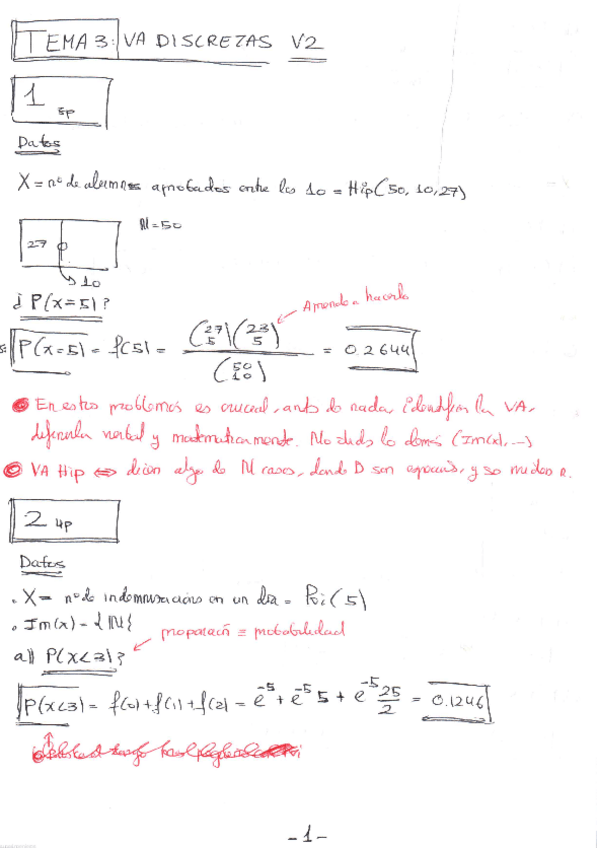 TEMA 3: VA DISCRETAS V2
1 5p
Datos
X = nº de alumnos aprobados entre los 10 = Hip(50, 10, 27)
27 N = 50
10
¿P(X=5)?
Aprende a hacerlo
P(X=5) = f(5) = (27 5)(23 5) / (50 10) = 0.2644
En estos problemas es crucial, antes de nada, identificar la VA,
definirla verbal y matemáticamente. No lo demás (Im(x), ...)
VA Hip ⇔ dicen algo de N casos, donde D son, y se miden n.
2 4p
Datos
. X = nº de indemnizaciones en un día = Poi(5)
. Im(x) = {ℕ}
proporción ≡ probabilidad
a) P(X<3)?
P(X<3) = f(0) + f(1) + f(2) = e^-5 + e^-5 5 + e^-5 25/2 = 0.1246
- 1 -